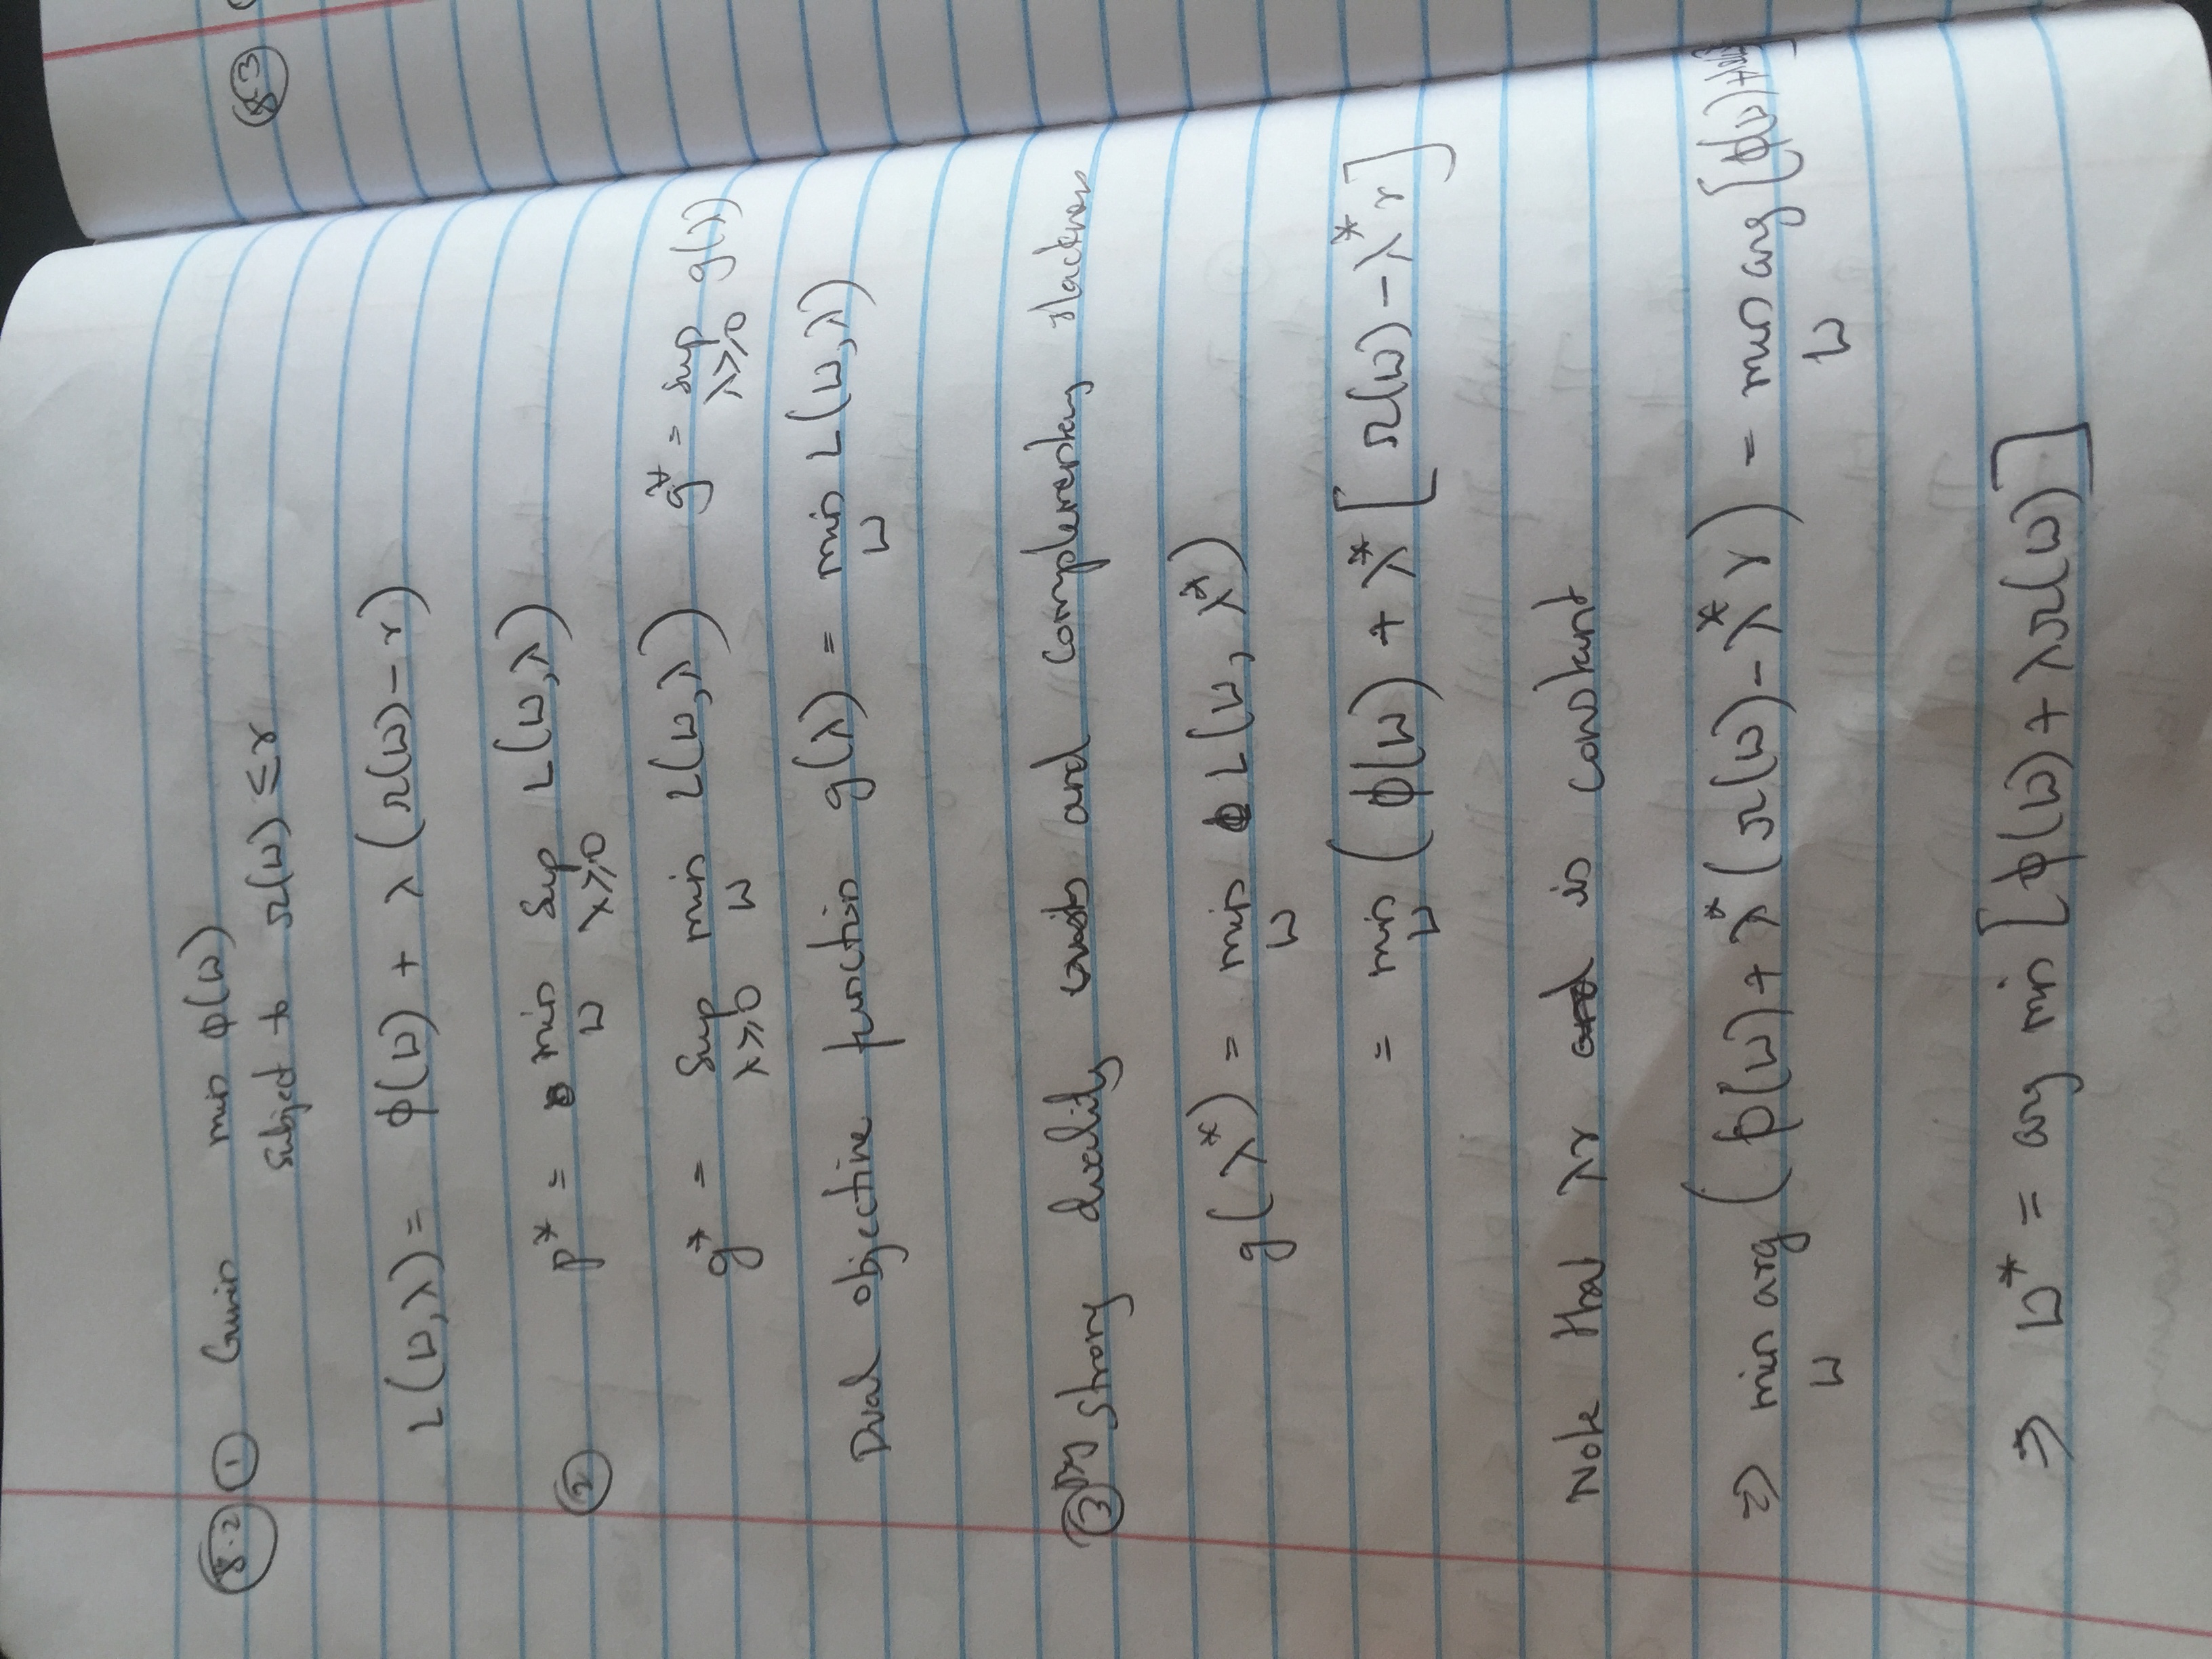 8.2 ① Given min ϕ(w)
Subject to Ω(w) ≤ r
L(w,λ) = ϕ(w) + λ(Ω(w) - r)
② p* = min_w sup_{λ≥0} L(w,λ)
g* = sup_{λ≥0} min_w L(w,λ) g* = sup_{λ≥0} g(λ)
Dual objective function g(λ) = min_w L(w,λ)
③ By strong duality and complementary slackness
g(λ*) = min_w L(w, λ*)
= min_w (ϕ(w) + λ* [Ω(w) - λ* r]
Note that λr is constant
⇒ min_w arg (ϕ(w) + λ* (Ω(w) - λ* r) = min_w arg [ϕ(w) +
⇒ w* = arg min [ϕ(w) + λΩ(w)]
8.3